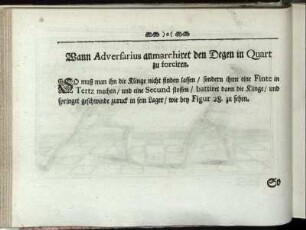 Wann Adversarius anmarchiret den Degen in Quart
zu forciren.
SO muß man ihn die Klinge nicht finden lassen / sondern ihm eine Finte in
Tertz machen / und eine Secund stossen / battiret dann die Klinge / und
springet geschwinde zuruck in sein Lager / wie bey Figur 28. zu sehen.
So